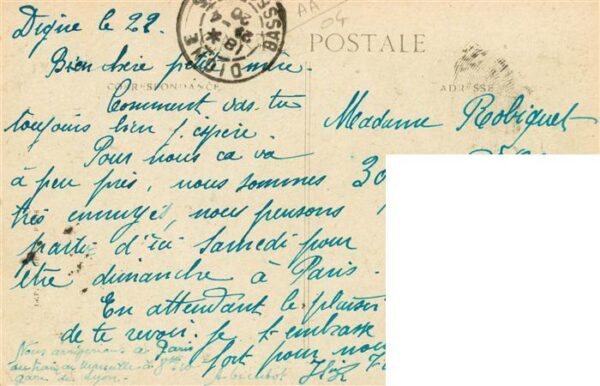 Digne le 22.
Bien chère petite mère.
Comment vas-tu
toujours bien j'espère.
Pour nous ca va
à peu près, nous sommes
très ennuyés, nous pensons
partir d'ici Samedi pour
être dimanche à Paris.
En attendant le plaisir
de te revoir. Je t'embrasse
fort pour nous
Nous arriverons à Paris
gare de Lyon.
CARTE POSTALE
CORRESPONDANCE
ADRESSE
Madame Robiquet
30
DIGNE
BASSES
18